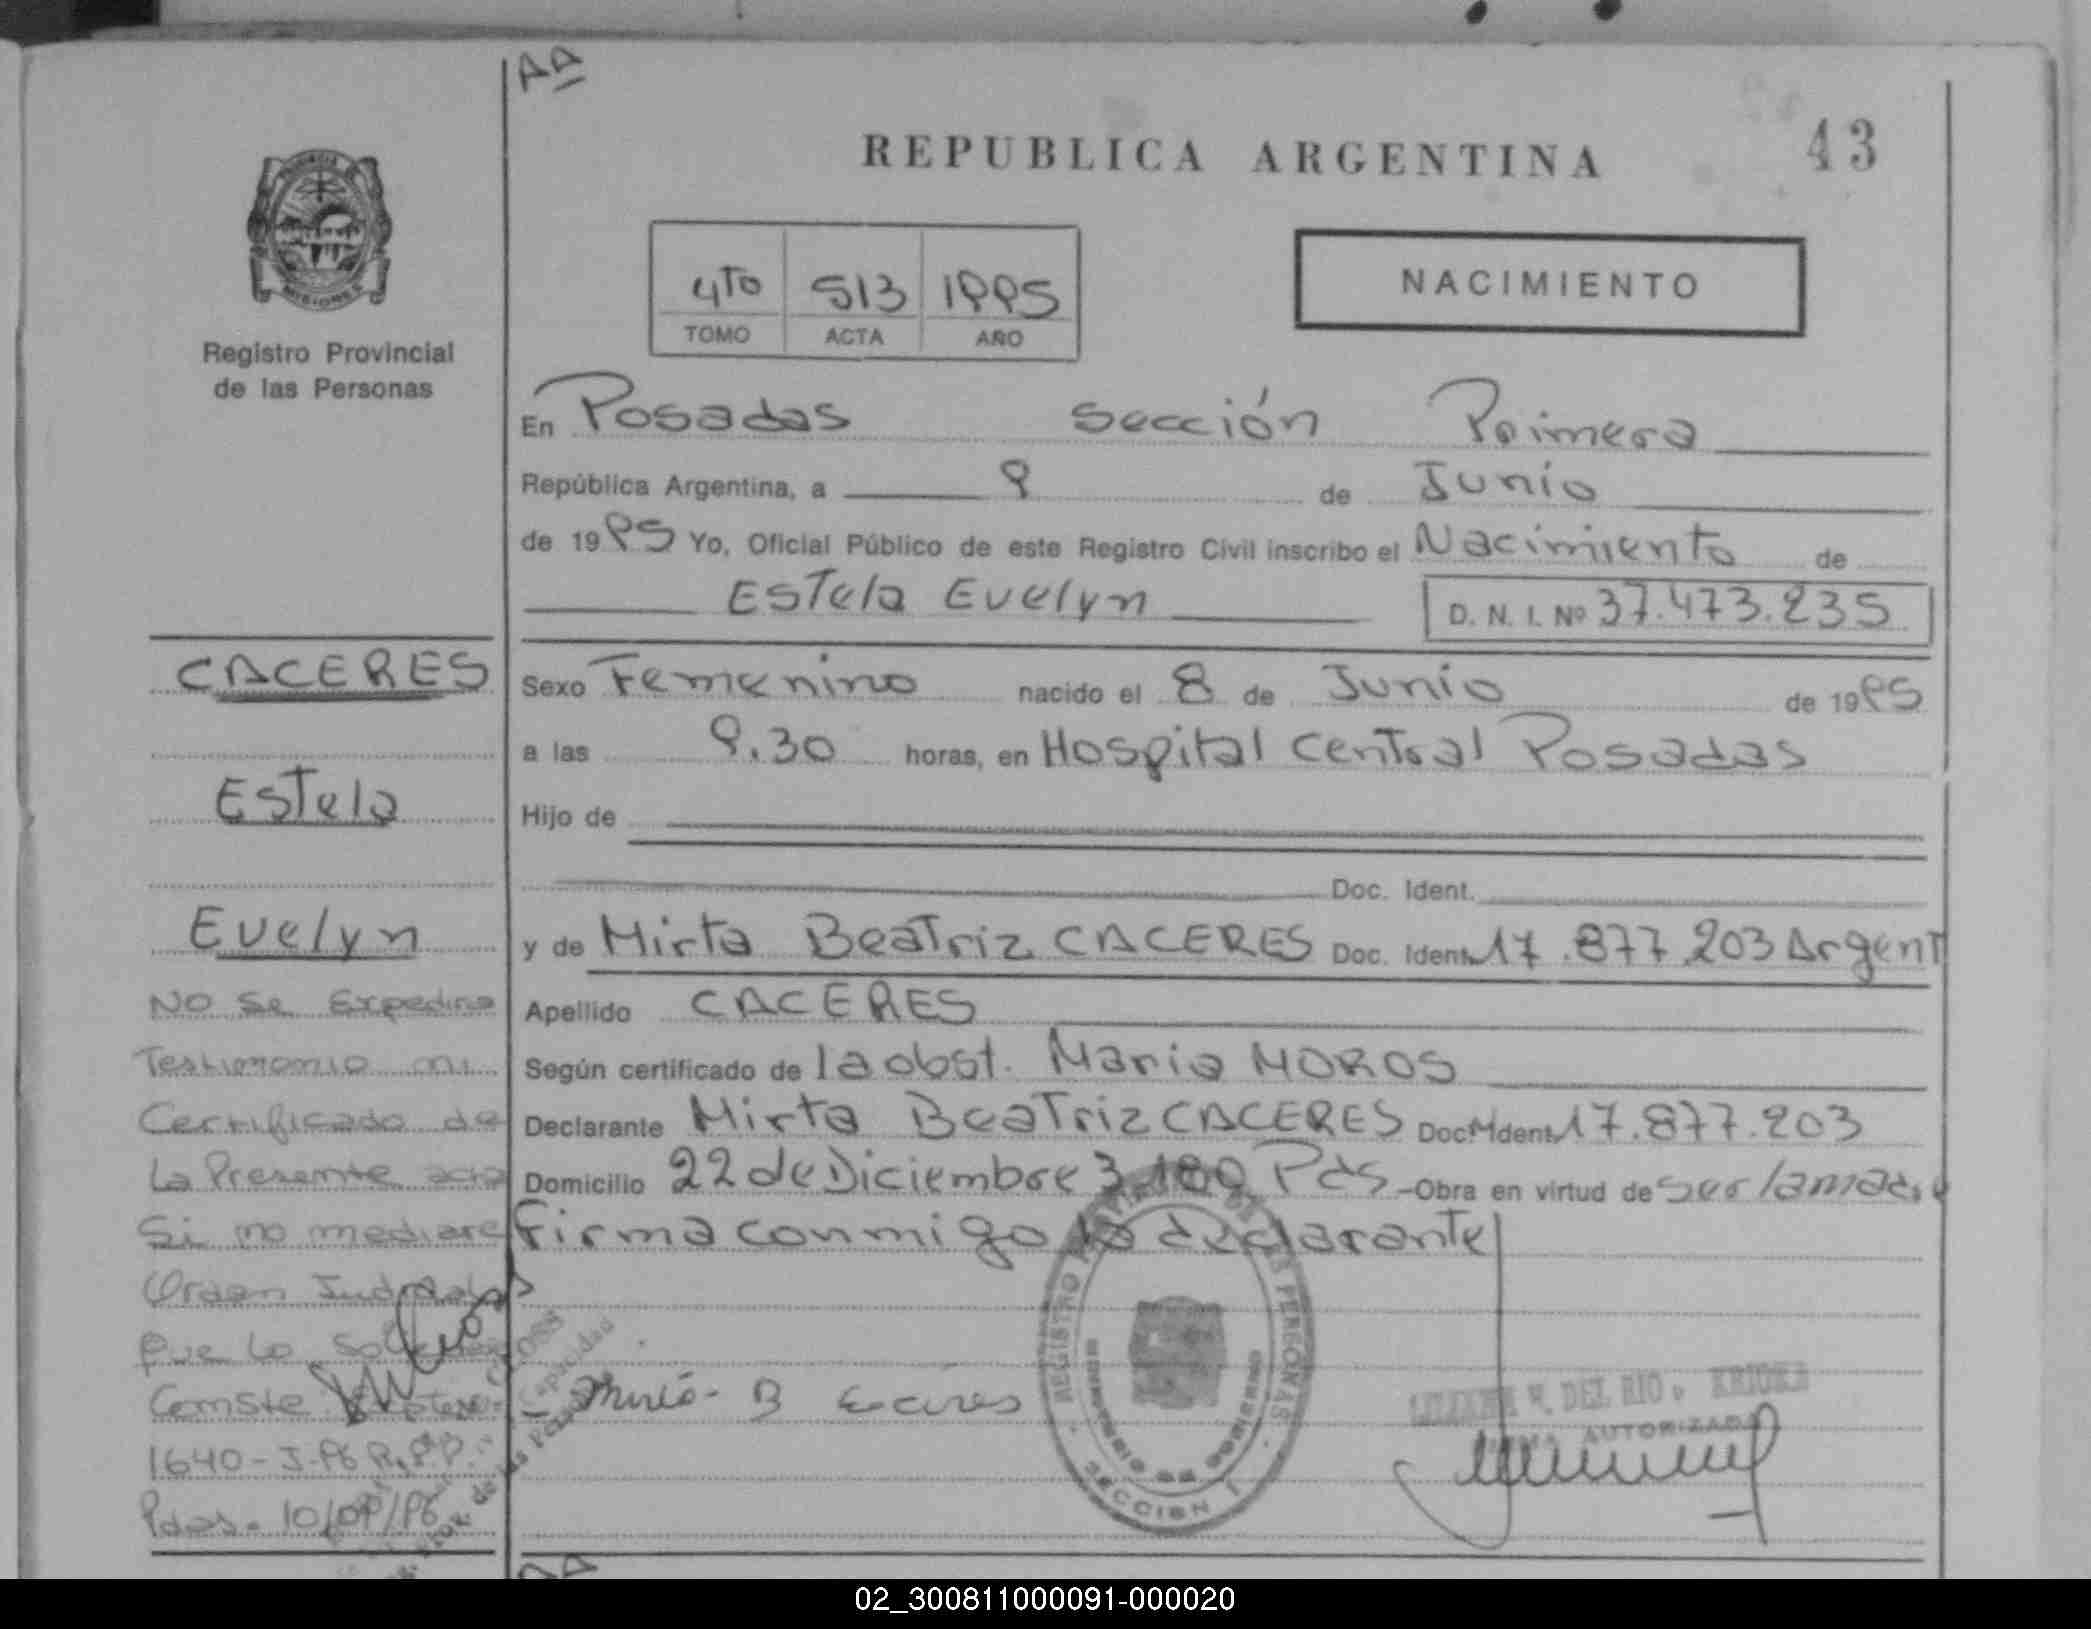 AA
REPUBLICA ARGENTINA
43
4To 513 1995
TOMO ACTA AÑO
NACIMIENTO
MISIONES
Registro Provincial
de las Personas
En Posadas Sección Primera
República Argentina, a 9 de Junio
de 1995 Yo, Oficial Público de este Registro Civil inscribo el Nacimiento de
Estela Evelyn D. N. I. Nº 37.473.235
CACERES
Estela
Evelyn
No Se Expedira
Testimonio ni
Certificado de
La Presente acta
Si no mediare
Orden Judicial
que Lo
Conste
1640-
Pdas. 10/09/96
Sexo Femenino nacido el 8 de Junio de 1995
a las 9.30 horas, en Hospital Central Posadas
Hijo de
Doc. Ident.
y de Mirta Beatriz CACERES Doc. Ident. 17.877.203 Argent
Apellido CACERES
Según certificado de la obst. Maria MOROS
Declarante Mirta Beatriz CACERES Doc. Ident. 17.877.203
Domicilio 22 de Diciembre 3.180 Pds -Obra en virtud de ser la madre
firma conmigo la declarante
REGISTRO PROVINCIAL DE LAS PERSONAS
MINISTERIO DE GOBIERNO
SECCION 1
DEL RIO
FIRMA AUTORIZADA
AA
02_300811000091-000020